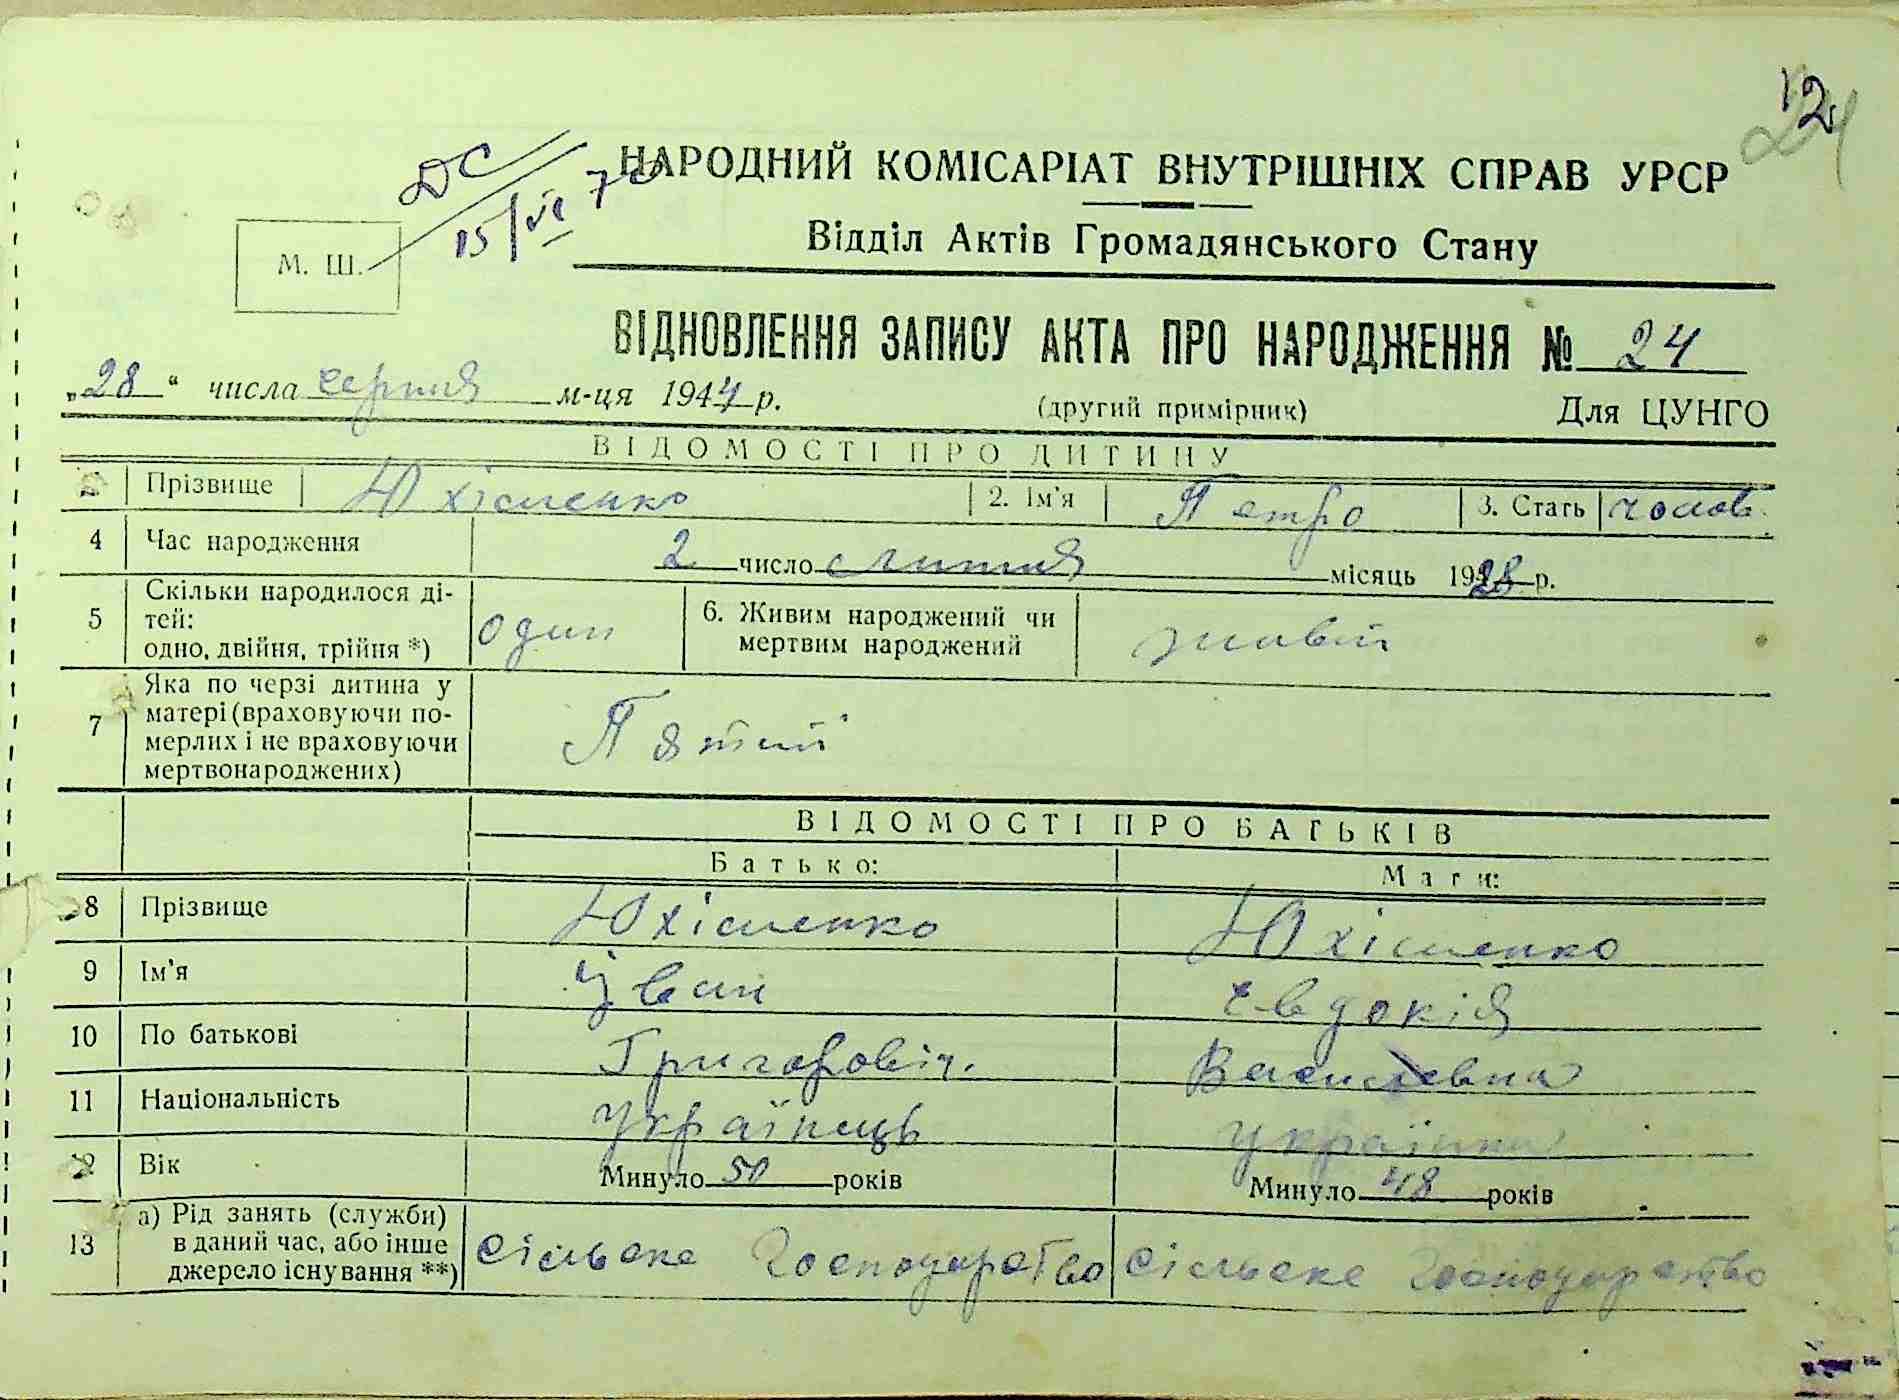 12
24
ДС
15/VI 70
НАРОДНИЙ КОМІСАРІАТ ВНУТРІШНІХ СПРАВ УРСР
Відділ Актів Громадянського Стану
М. Ш.
ВІДНОВЛЕННЯ ЗАПИСУ АКТА ПРО НАРОДЖЕННЯ № 24
„28“ числа серпня м-ця 1944 р. (другий примірник) Для ЦУНГО
ВІДОМОСТІ ПРО ДИТИНУ
Прізвище Юхіменко 2. Ім'я Петро 3. Стать чолов.
4 Час народження 2 число липня місяць 1928 р.
5 Скільки народилося ді-
тей:
одно, двійня, трійня *) один 6. Живим народжений чи
мертвим народжений живий
7 Яка по черзі дитина у
матері (враховуючи по-
мерлих і не враховуючи
мертвонароджених) Пятий
ВІДОМОСТІ ПРО БАТЬКІВ
Батько: Мати:
8 Прізвище Юхіменко Юхіменко
9 Ім'я Іван Евдокія
10 По батькові Григоровіч. Василевна
11 Національність Українець Українка
12 Вік Минуло 50 років Минуло 48 років
13 а) Рід занять (служби)
в даний час, або інше
джерело існування **) сільске господарство сільске господарство